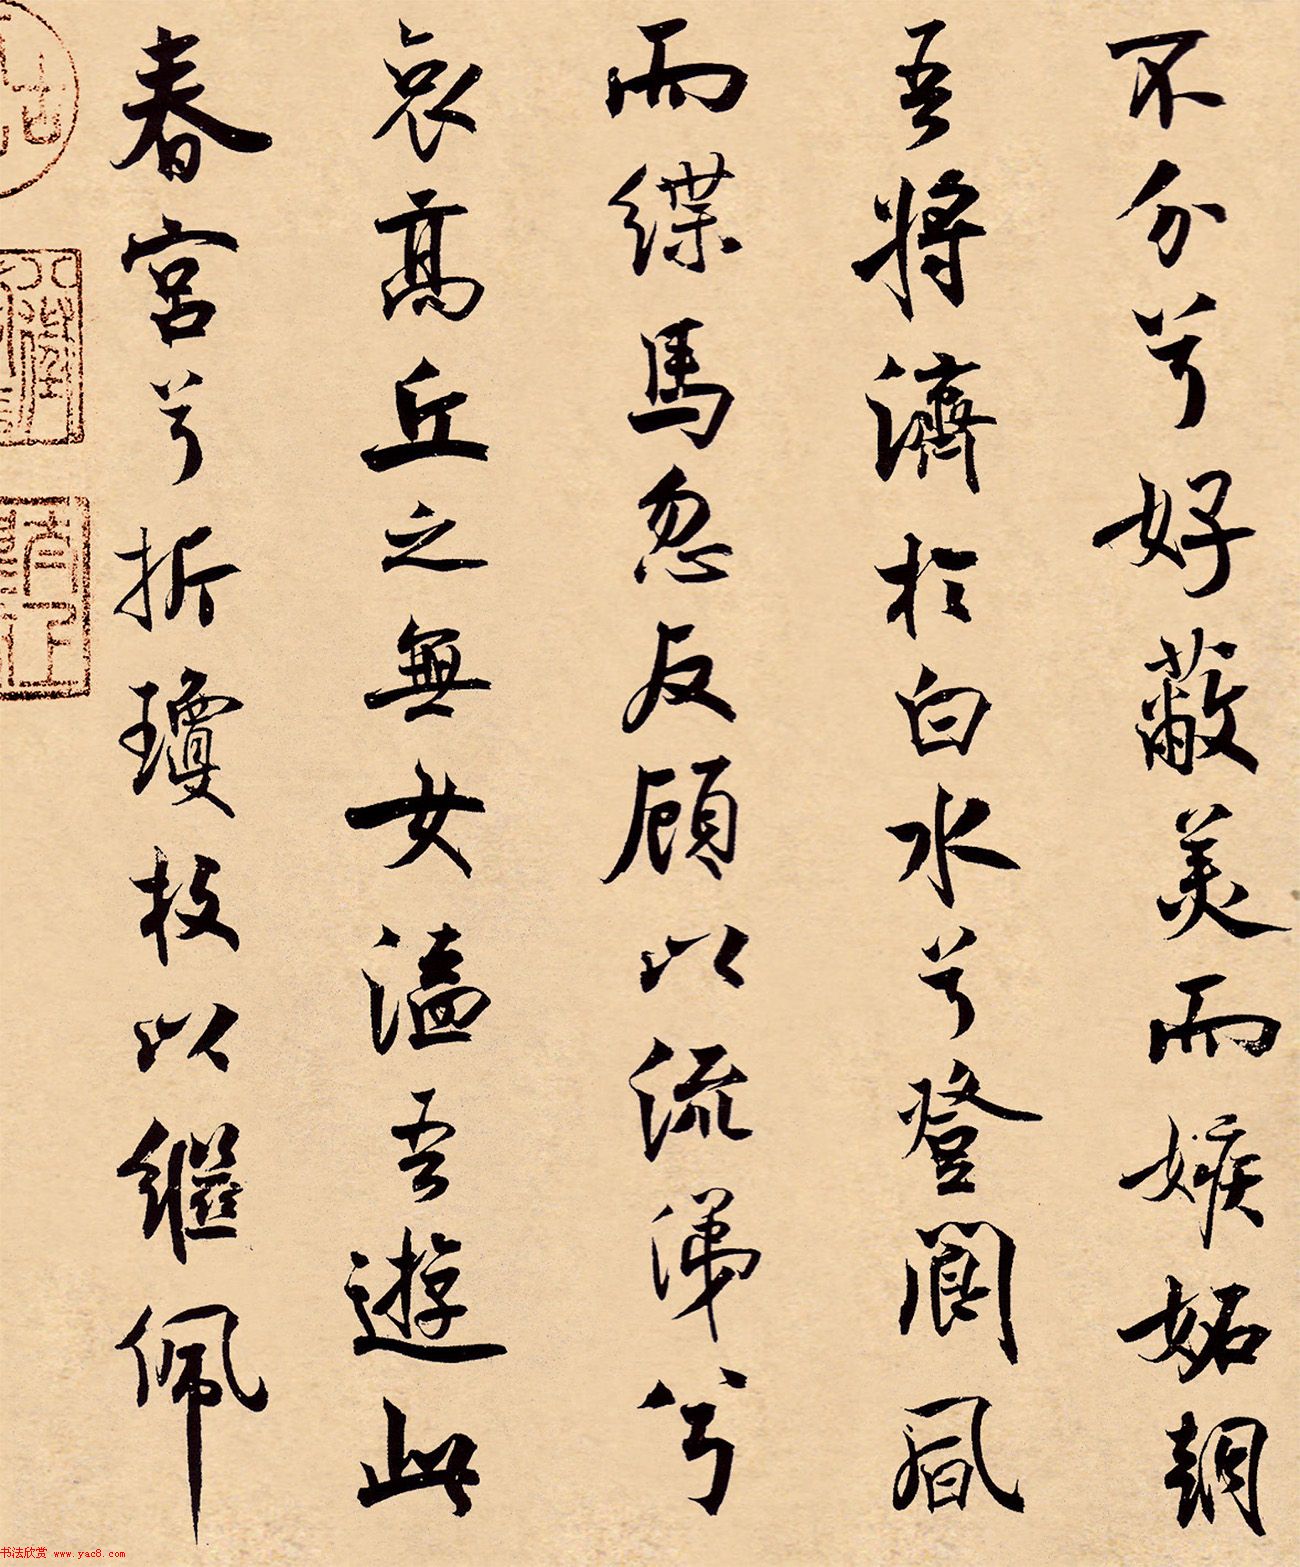 不分兮好蔽美而嫉妬朝
吾將濟於白水兮登閬風
而緤馬忽反顧以流涕兮
哀高丘之無女溘吾遊此
春宮兮折瓊枝以繼佩
书法欣赏 www.yac8.com